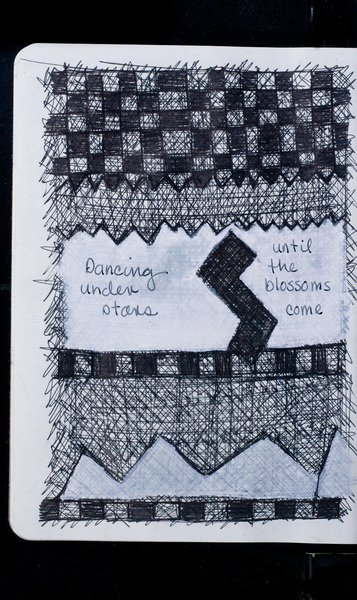 Dancing
under
stars
until
the
blossoms
come